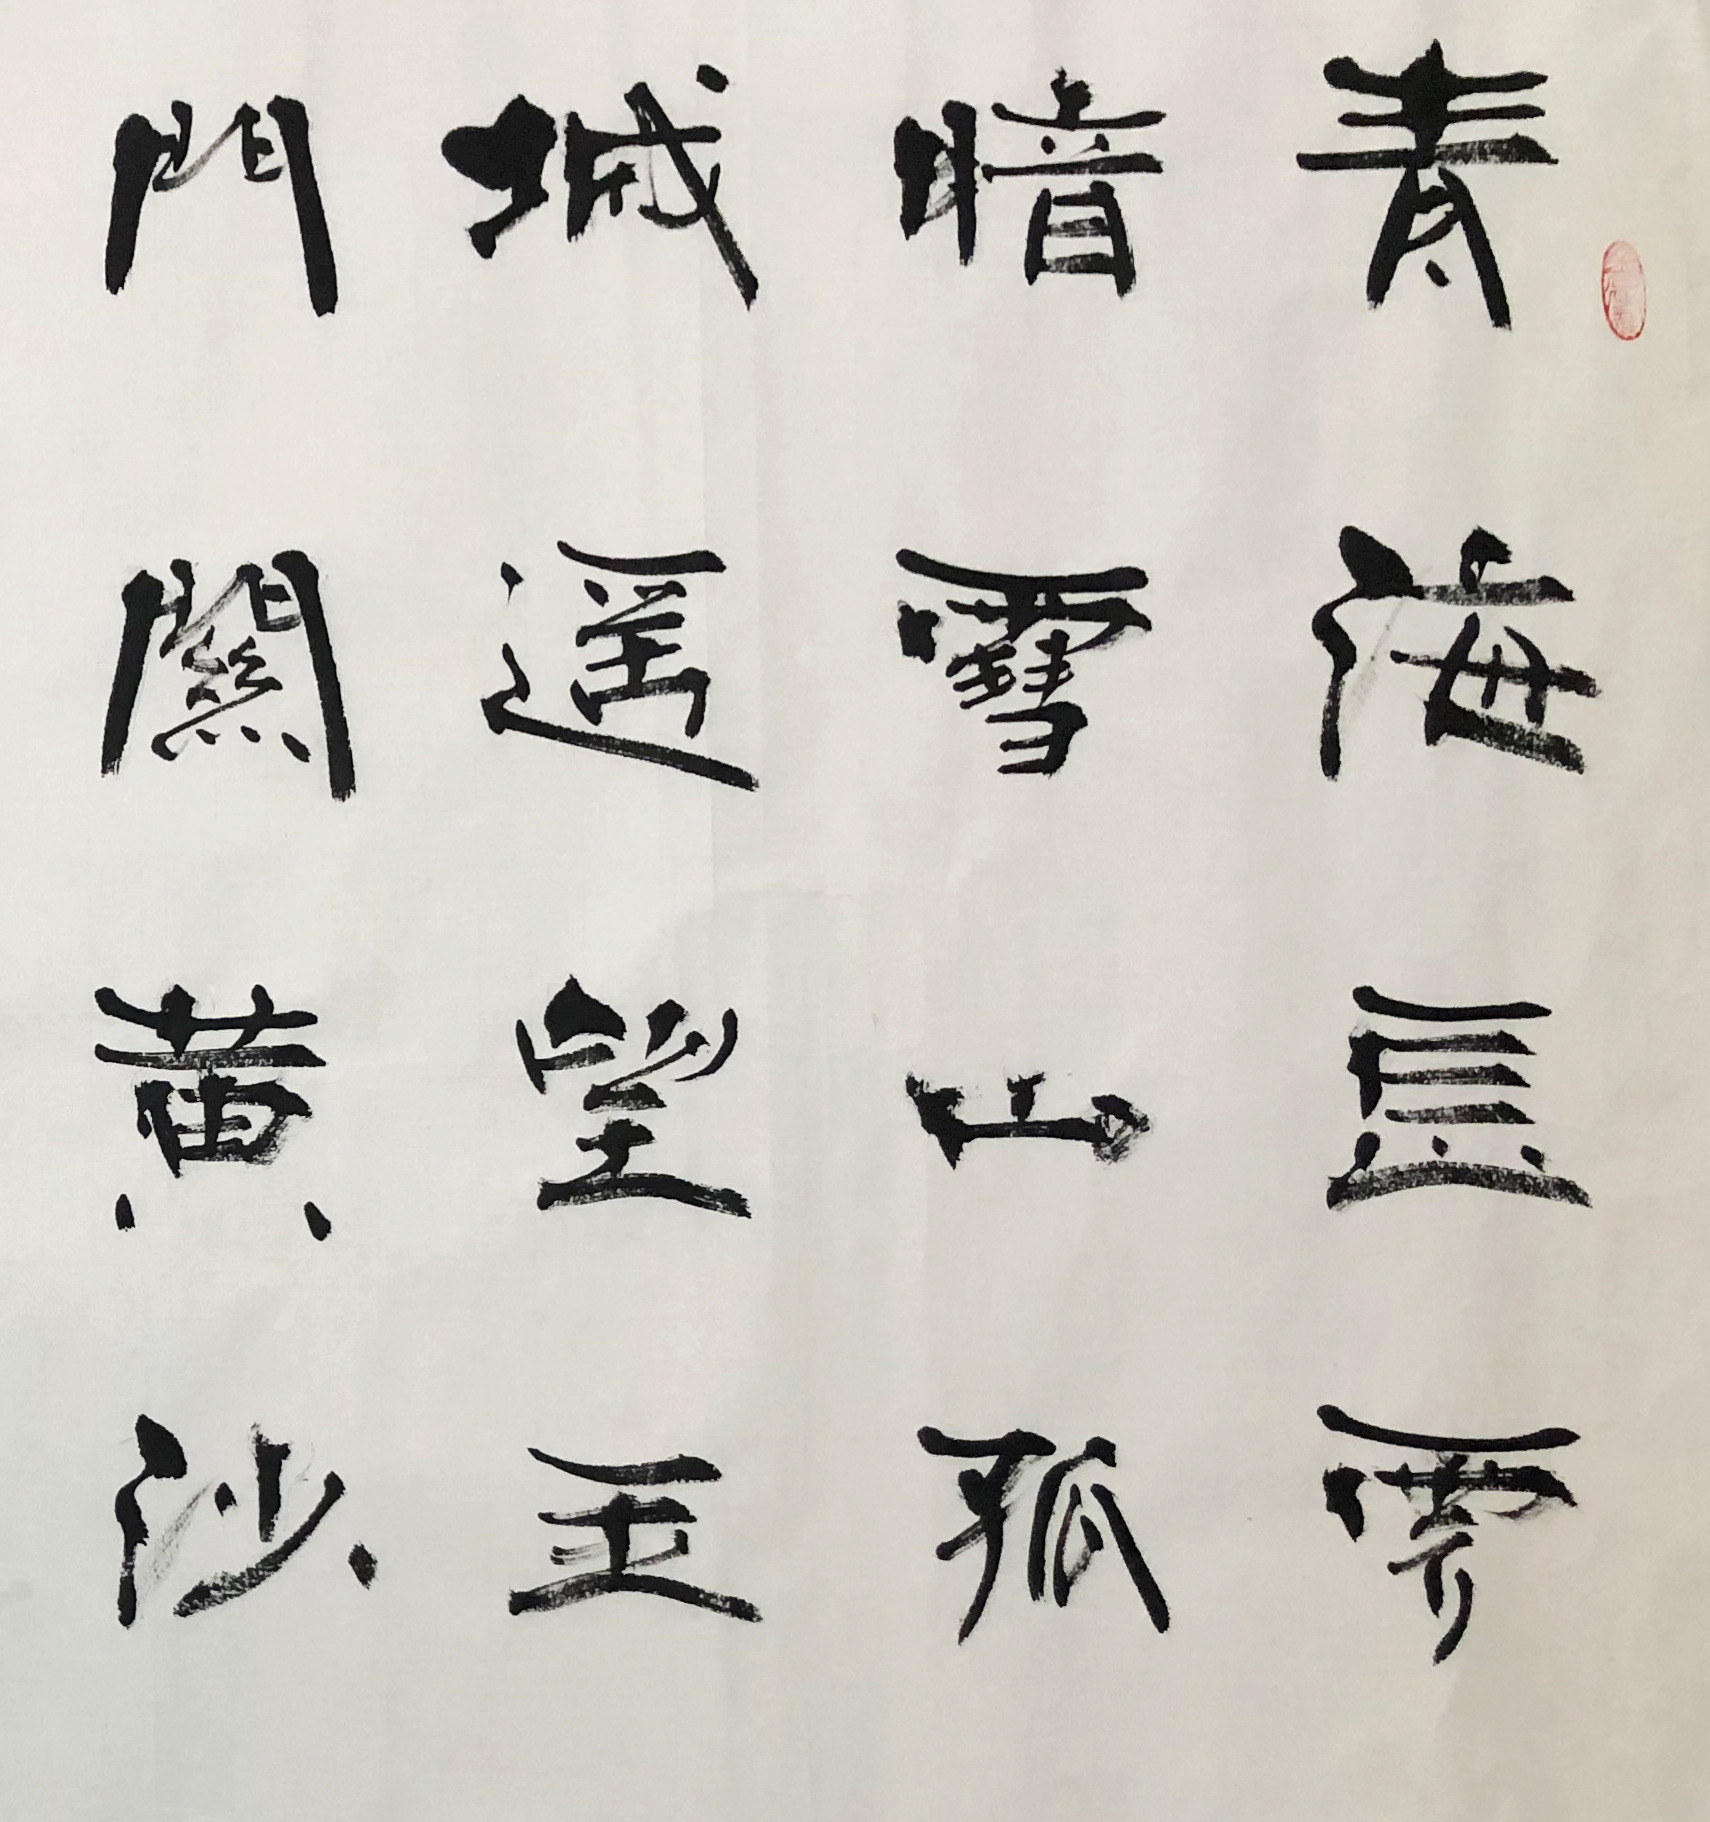 青海長雲
暗雪山孤
城遥望玉
門關黄沙